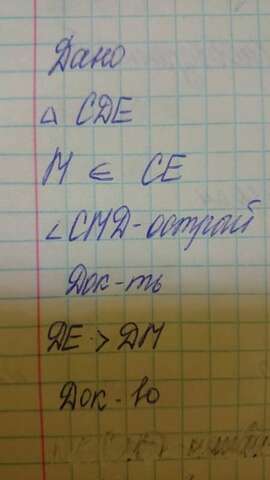 Дано
△ CDE
M ∈ CE
∠CMD-острой
Док-ть
DE > DM
Док-во